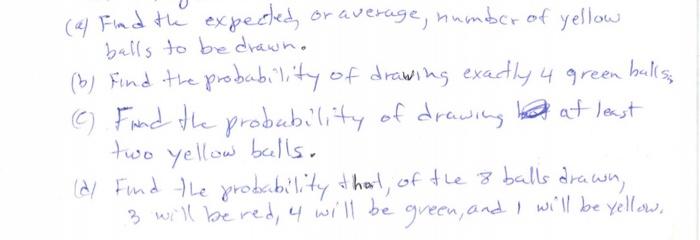 (a) Find the expected, or average, number of yellow
balls to be drawn.
(b) Find the probability of drawing exactly 4 green balls.
(c) Find the probability of drawing at least
two yellow balls.
(d) Find the probability that, of the 8 balls drawn,
3 will be red, 4 will be green, and 1 will be yellow.